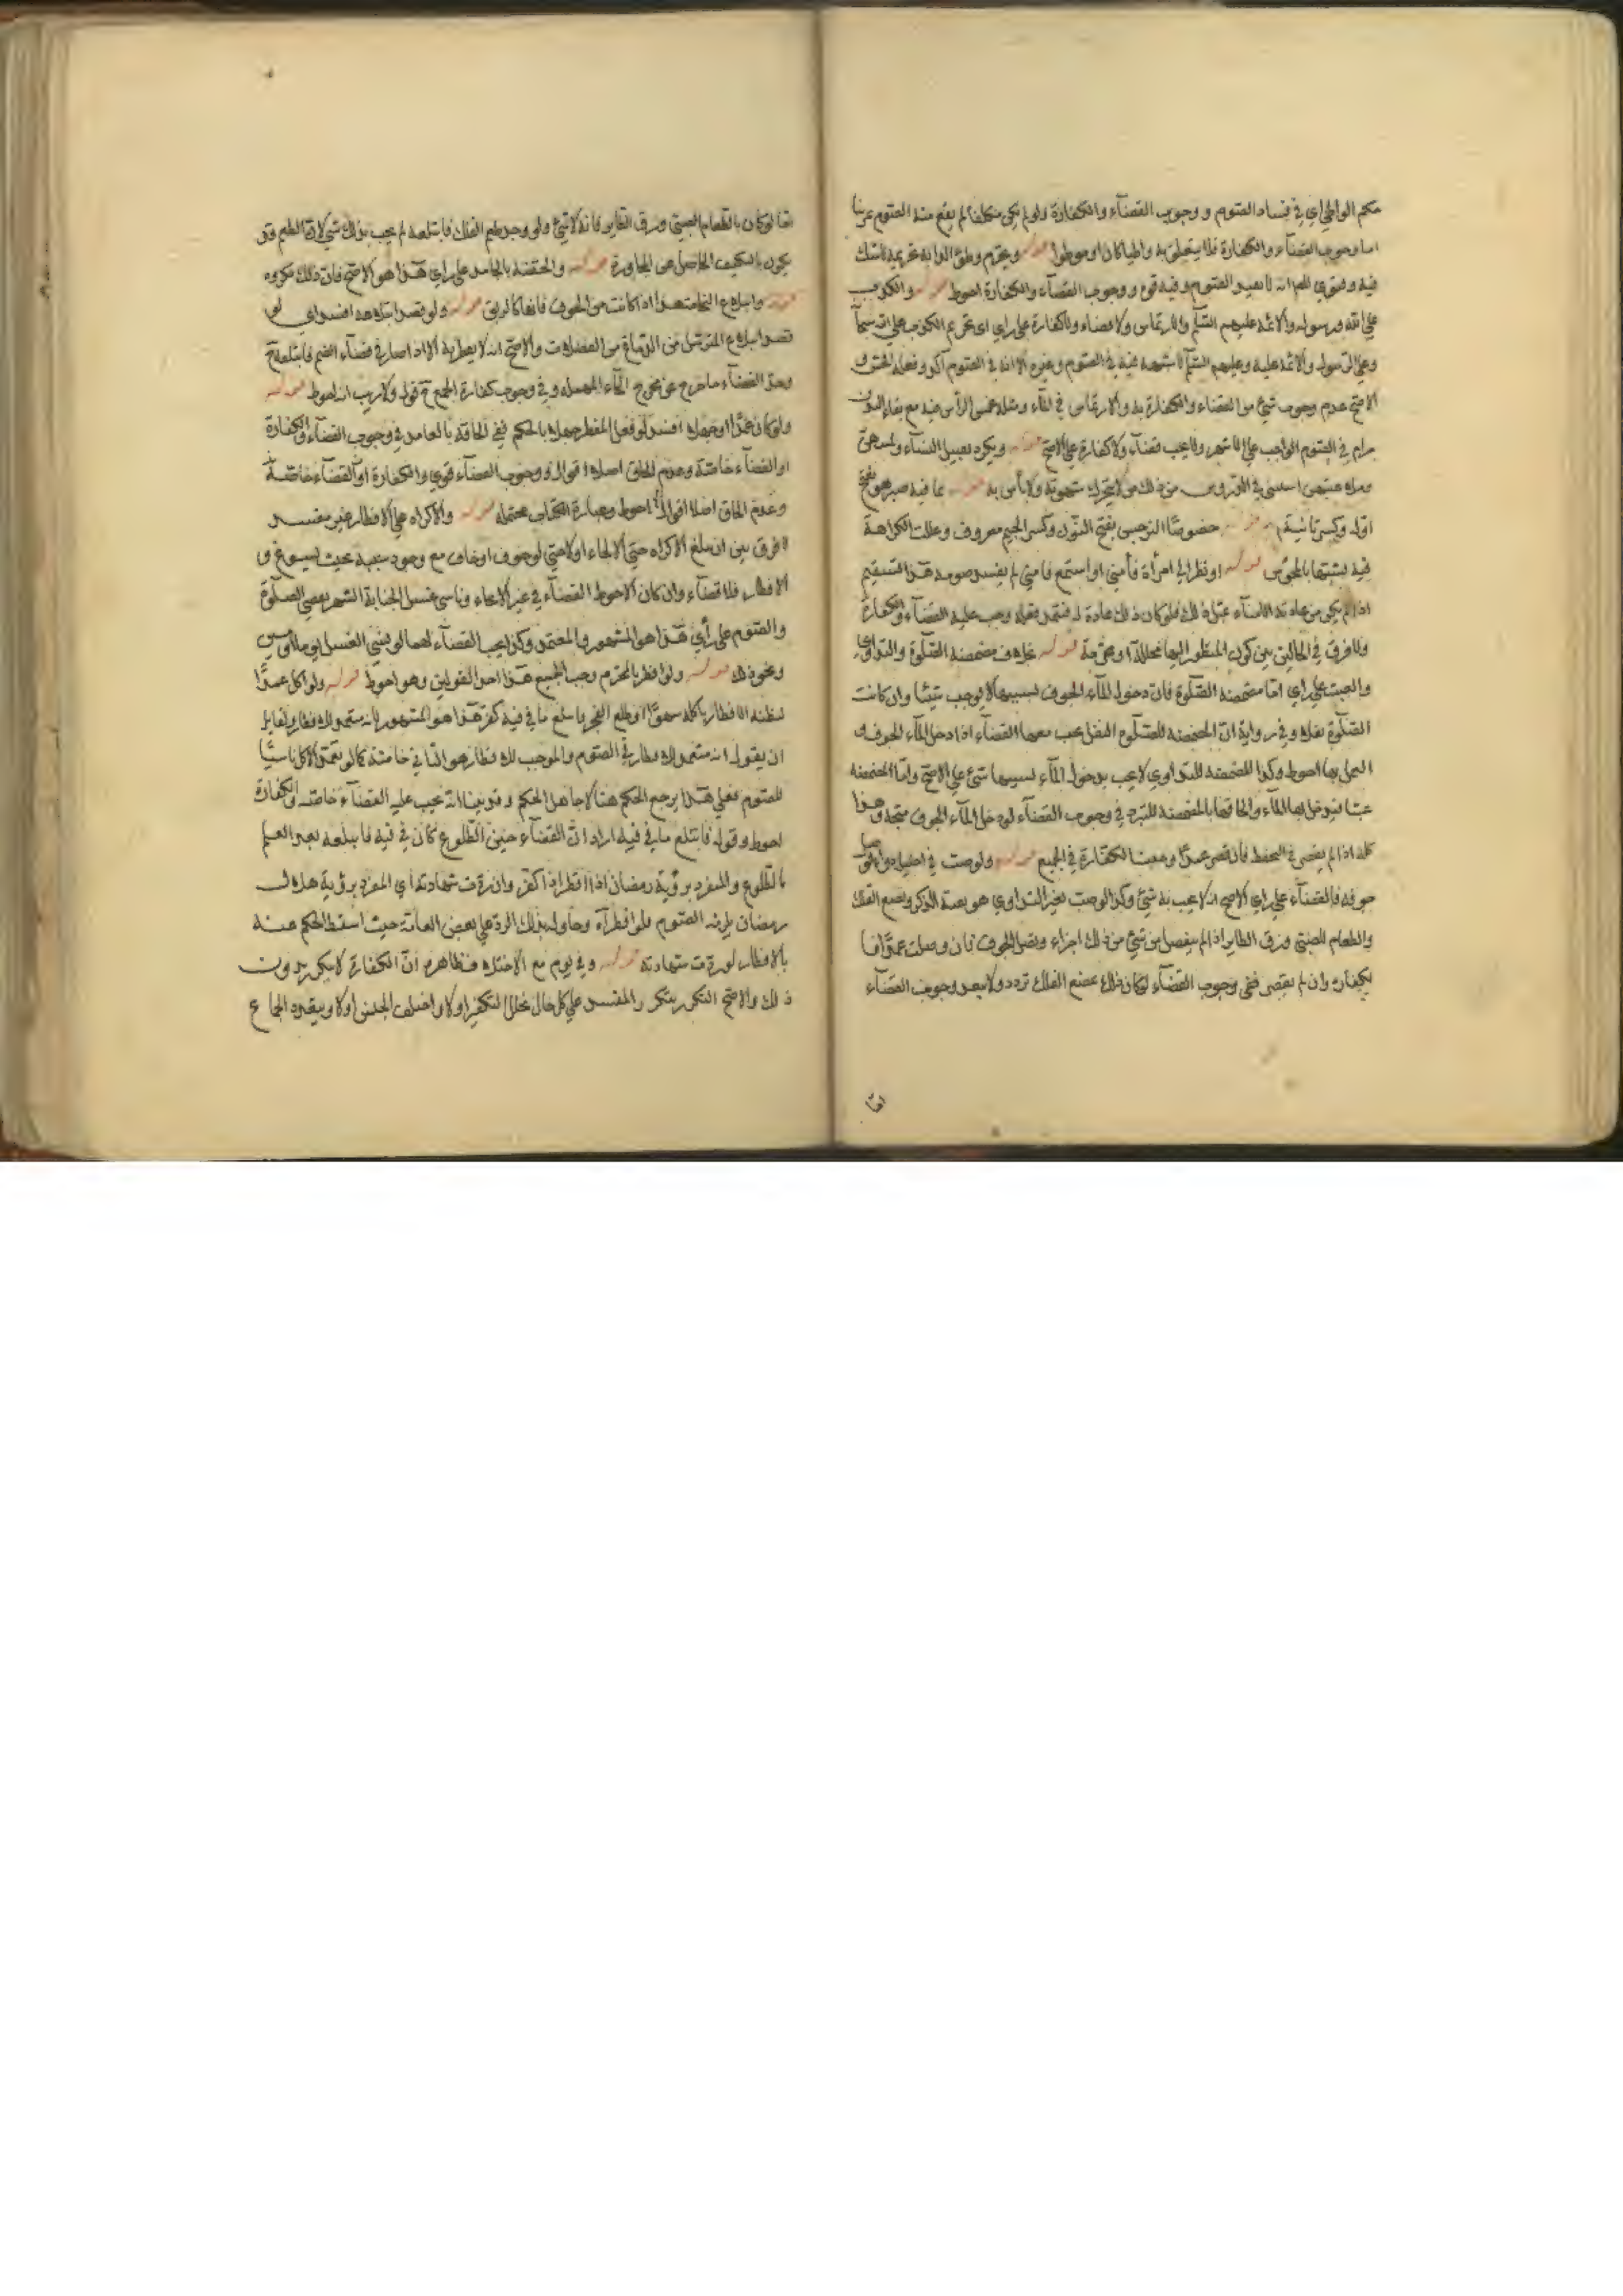 حكم الواطي اي في فساد الصوم ووجوب القضآء والكفارة ولو لم يكن مكلفا لم يقع منه الصوم عرينا
اما وجوب القضآء والكفارة فلا يتعلق به واطيا كان او موطوا قوله ويحرم وطئ الدابة تحريمه لا شك
فيه وفتوي المص انه لا يفسد الصوم وفيه قوة ووجوب القضآء والكفارة احوط قوله والكذب
علي الله ورسوله والائمة عليهم السلم والارتماس ولا قضاء ولا كفارة علي راي اي تحريم الكذب علي الله سبحانه
وعلي الرسول والائمة عليه وعليهم السلم لا شبهة فيه في الصوم وغيره الا انه في الصوم آكد وفعله
الاصح عدم وجوب شئ من القضاء والكفارة به والارتماس في المآء ومثله غمس الرأس فيه مع بقاء البدن
حرام في الصوم الواجب علي الاشهر ولا يجب قضآء ولا كفارة علي الاصح قوله ويكره تقبيل النسآء ولمسهن
وملاعبتهن استثني في الدروس من ذلك من لا يتحرك شهوته ولا بأس به قوله بما فيه صبر هو بفتح
اوله وكسر ثانيه قوله خصوصًا النرجس بفتح النون وكسر الجيم معروف وعللت الكراهة
فيه بشبهها بالمجوس قوله او نظر الي امرأة فأمني او استمع فامني لم يفسد صومه هذا التقييم
اذا لم يكن من عادته الامنآء عقل ذلك فلو كان ذلك عادة له فتعمد فعله وجب عليه القضآء والكفارة
ولا فرق في الحالين بين كون المنظور اليها محللة او محرمة قوله خلاف مضمضة الصلوة والتداوي
والعبث علي راي اما مضمضة الصلوة فان دخول المآء الجوف بسببها لا يوجب شيئا وان كانت
الصلوة نفلا وفي رواية ان المضمضة للصلوة النفل يجب معها القضآء اذا دخل المآء الجوف و
العمل بها احوط وكذا المضمضة للتداوي لا يجب بدخول المآء بسببها شئ علي الاصح واما المضمضة
عبثا فيدخل بها المآء والحاقها بالمضمضة للتبرد في وجوب القضآء لو دخل المآء الجوف متجه وهذا
كله اذا لم يقصر في التحفظ فأن قصر عمدًا وجبت الكفارة في الجميع قوله ولو صب في احليله دوآء فوصل
جوفه فالقضآء علي راي الاصح انه لا يجب به شئ وكذا لو صب لغير التداوي هو بصدد الذكر ومضغ العلك
والطعام للصبي وزق الطاير اذا لم ينفصل من شئ من ذلك اجزاء وتصل الجوف فان وصلت عمدًا فما
يكفارة وان لم يقصر ففي وجوب القضآء لو كان ذلك بمضغ العلك تردد ولا يبعد وجوب القضآء
اما
اما لو كان بالطعام للصبي وزق الطاير فانه لا شئ ولو وجد طعم العلك فابتلعه لم يجب بذلك شئ لان الطعم قد
يكون بالتكيف الحاصل من المجاورة قوله والحقنة بالجامد علي راي هذا هو الاصح فان ذلك مكروه
قوله وابتلاع النخامة هذا اذا كانت من الجوف فانها كالريق قوله ولو قصد ابتلاعه افسد اي لو
قصد ابتلاع المترسل من الدماغ من الفضلات والاصح انه لا يفطر به الا اذا صار في فضآء الفم فابتلعه ح
وحد الفضآء ما خرج عن مخرج الحآء المهملة وفي وجوب كفارة الجمع ح قول ولا ريب انه احوط قوله
ولو كان عمدًا او جهلا افسد لو فعل المفطر جهلا بالحكم ففي الحاقه بالعامد في وجوب القضآء والكفارة
او القضآء خاصة وعدم الحلق اصلا اقوال ووجوب القضآء قوي والكفارة او القضآء خاصة
وعدم الحاق اصلا اقوال احوط وعبارة الكتاب محتملة قوله والاكراه علي الافطار غير مفسد
لا فرق بين ان يبلغ الاكراه حتي الالجاء او لا حتي لو خوف او خاف مع وجود سببه بحيث يسوغ و
الافطار فلا قضآء وان كان الاحوط القضآء في غير الالجاء وناسي غسل الجنابة الشهر يقضي الصلوة
والصوم علي رأي هذا هو المشهور والمعتمد وكذا يجب القضآء لهما لو نسي الغسل
ونحو ذلك قوله ولو افطر بالمحرم وجب الجميع هذا احد القولين وهو احوط قوله ولو اكل عمدًا
لظنه الافطار باكله سهوًا او طلع الفجر فابتلع ما في فيه كفر هذا هو المشهور لانه متعمد للافطار ولقايل
ان يقول انه متعمد للافطار في الصوم والموجب للافطار هو الثاني خاصة كما لو تعمد الاكل ناسيًا
للصوم فعلي هذا يرجع الحكم هنا لا جاهل الحكم وقد بينا انه يجب عليه القضآء خاصة والكفارة
احوط وقوله فابتلع ما في فيه اراد ان القضآء حين الطلوع كان في فيه فابتلعه بعد العلم
بالطلوع والمنفرد برؤية رمضان اذا افطر اذا كفر وان ردت شهادته اي المنفرد برؤية هلال
رمضان يلزمه الصوم فلو افطر آه وحاول بذلك الرد علي بعض العامة حيث اسقط الحكم عنه
بالافطار لو ردت شهادته قوله وفي يوم مع الاختلاف فظاهره ان الكفارة لا يكرر بدون
ذلك والاصح التكرر بتكرر المفسد علي كل حال تخلل التكفير اولا واختلف الجنس اولا ويتعدد الجماع